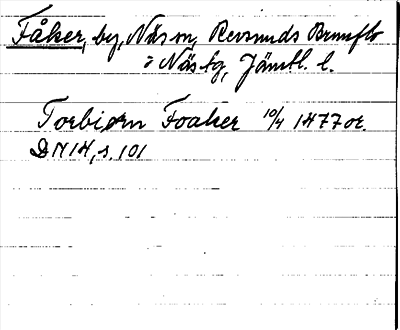 Fåker, by, Näs sn, Revsunds Brunflo
o Näs tg, Jämtl. l.
Torbiørn Foaker 10/4 1477 or.
DN 14, s. 101